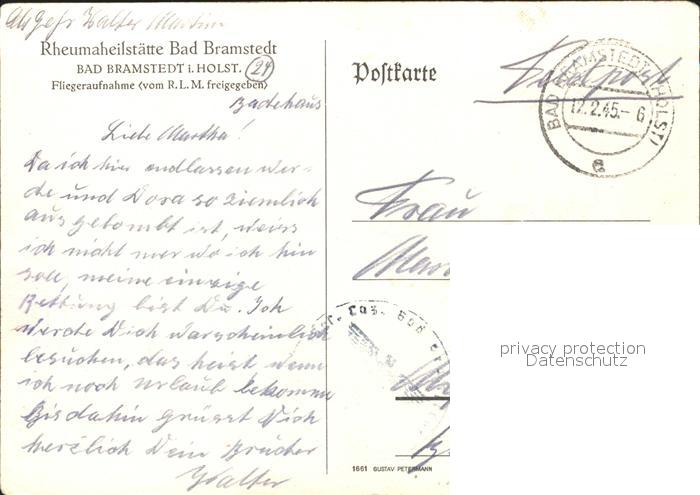 Abs Gefr Walter Martin
Rheumaheilstätte Bad Bramstedt
BAD BRAMSTEDT i. HOLST. (24)
Fliegeraufnahme (vom R. L. M. freigegeben)
Badehaus
Liebe Martha!
Da ich hier endlassen wer-
de und Dora so ziemlich
aus gebombt ist, weiss
ich nicht mer wo ich hin
soll, meine einzige
Rettung bist Du. Ich
werde Dich warscheinlich
besuchen, das heist wenn
ich noch urlaub bekomme
Bis dahin grüsst Dich
herzlich Dein Brucher
Walter
Postkarte
Feldpost
BAD BRAMSTEDT (HOLST)
12.2.45.- 6
a
Frau
Mar
1661 GUSTAV PETERMANN
privacy protection
Datenschutz